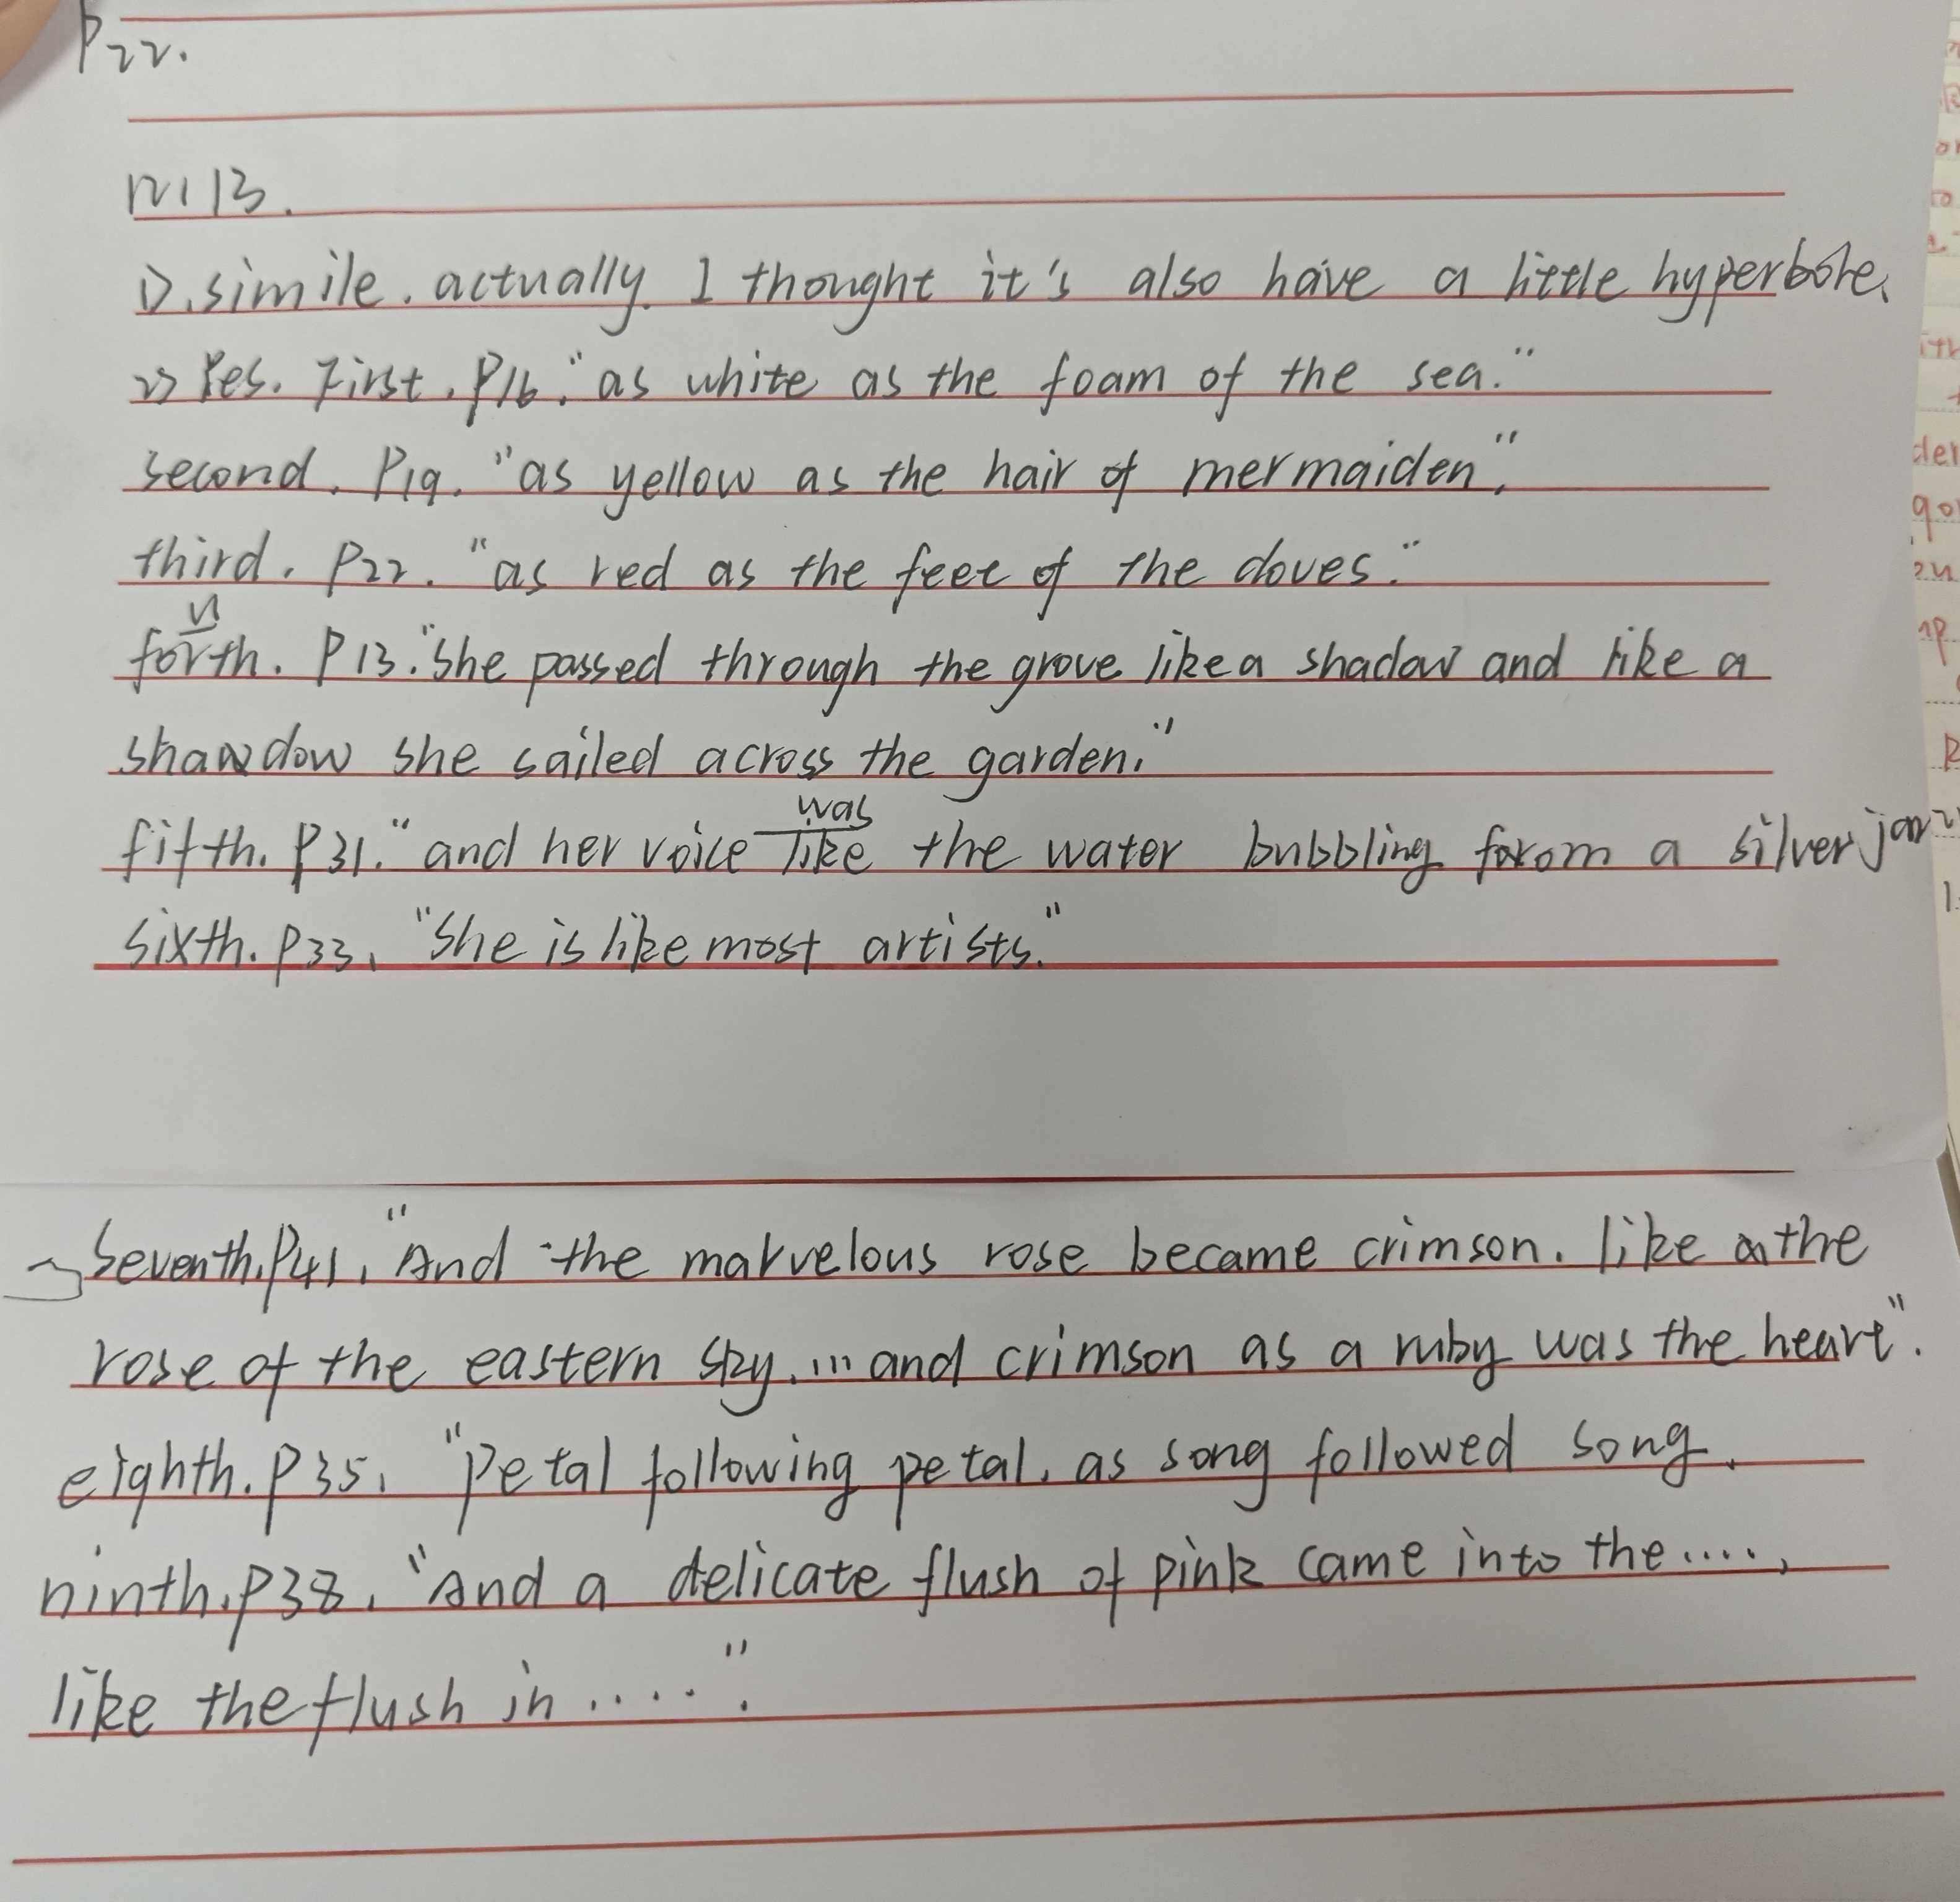 P22.
1)simile. actually. I thought it's also have a little hyperbole.
2) Yes. First. P16. "as white as the foam of the sea."
second. P19. "as yellow as the hair of mermaiden".
third. P22. "as red as the feet of the doves."
fourth. P13. "She passed through the grove like a shadow and like a
shawdow she sailed across the garden."
fifth. P31. "and her voice was like the water bubbling from a silver jar
sixth. P33. "She is like most artists."
Seventh. P41. "And the marvelous rose became crimson. like the
rose of the eastern sky. ... and crimson as a ruby was the heart".
eighth. P35. "Petal following petal. as song followed song.
ninth. P38. "And a delicate flush of pink came into the ....,
like the flush in .....".